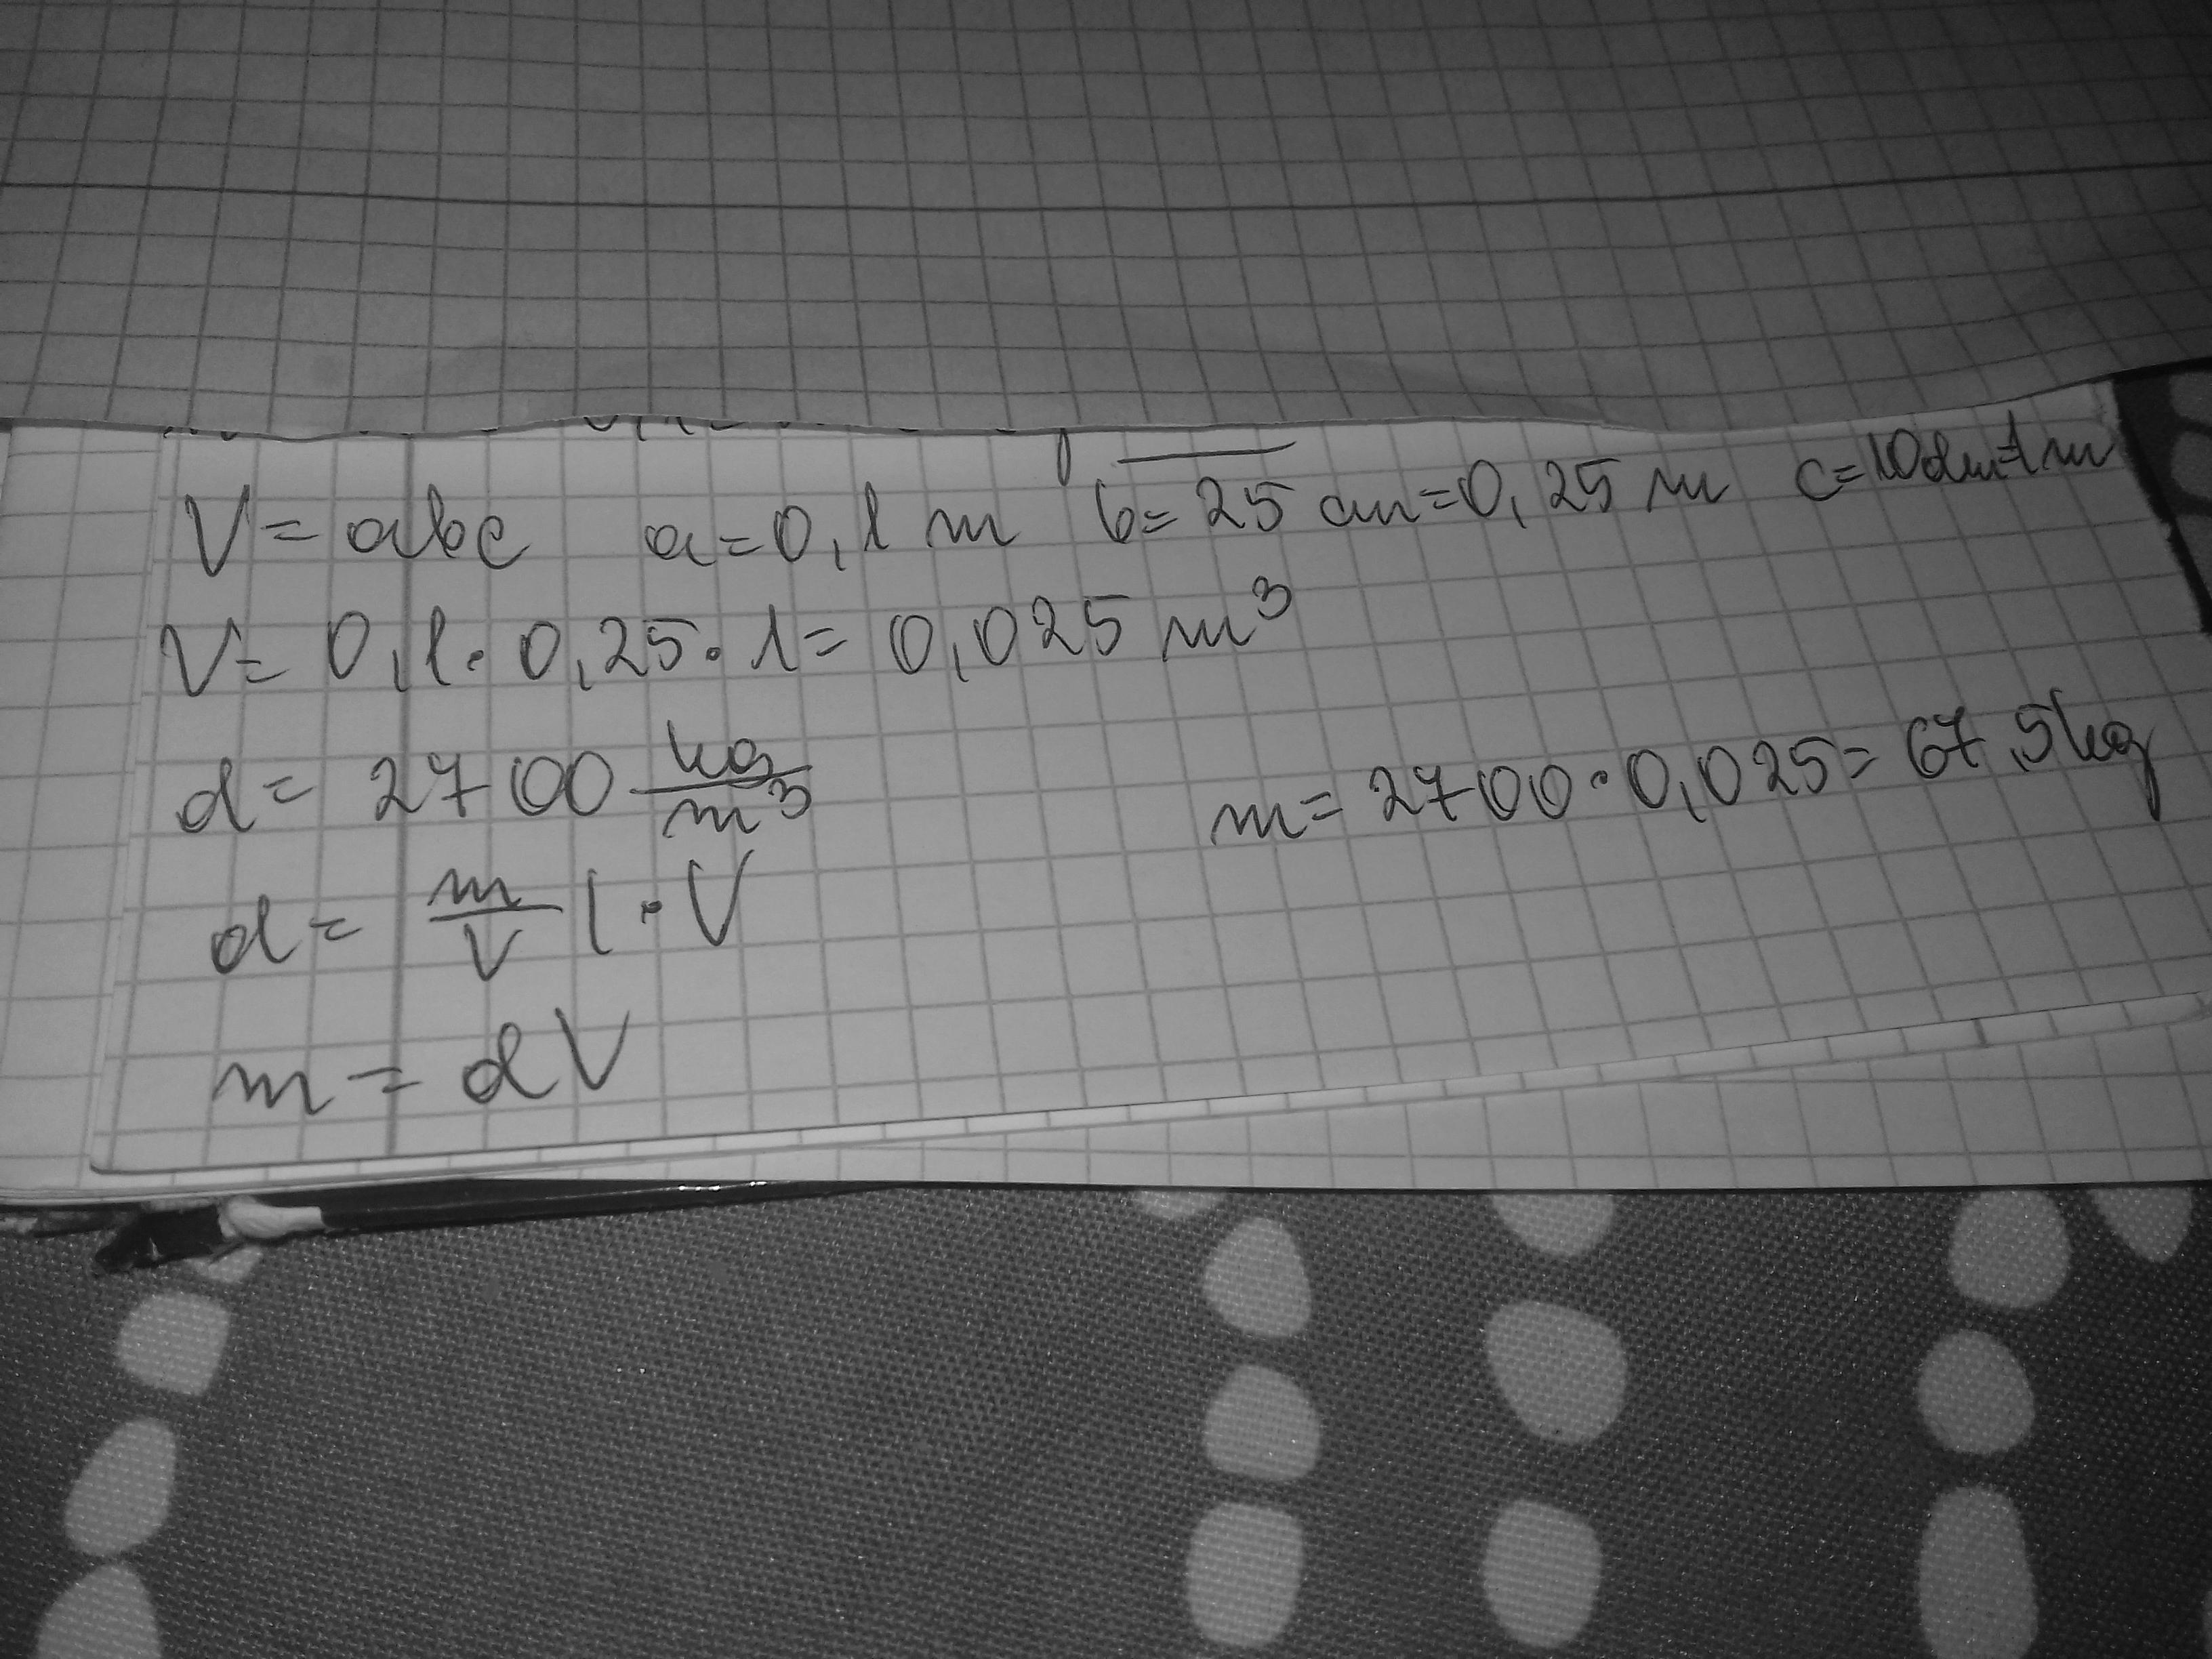 V = abc a = 0,1 m b = 25 cm = 0,25 m c = 10dm=1m
V = 0,1 · 0,25 · 1 = 0,025 m³
d = 2700 kg/m³ m = 2700 · 0,025 = 67,5kg
d = m/V | · V
m = dV